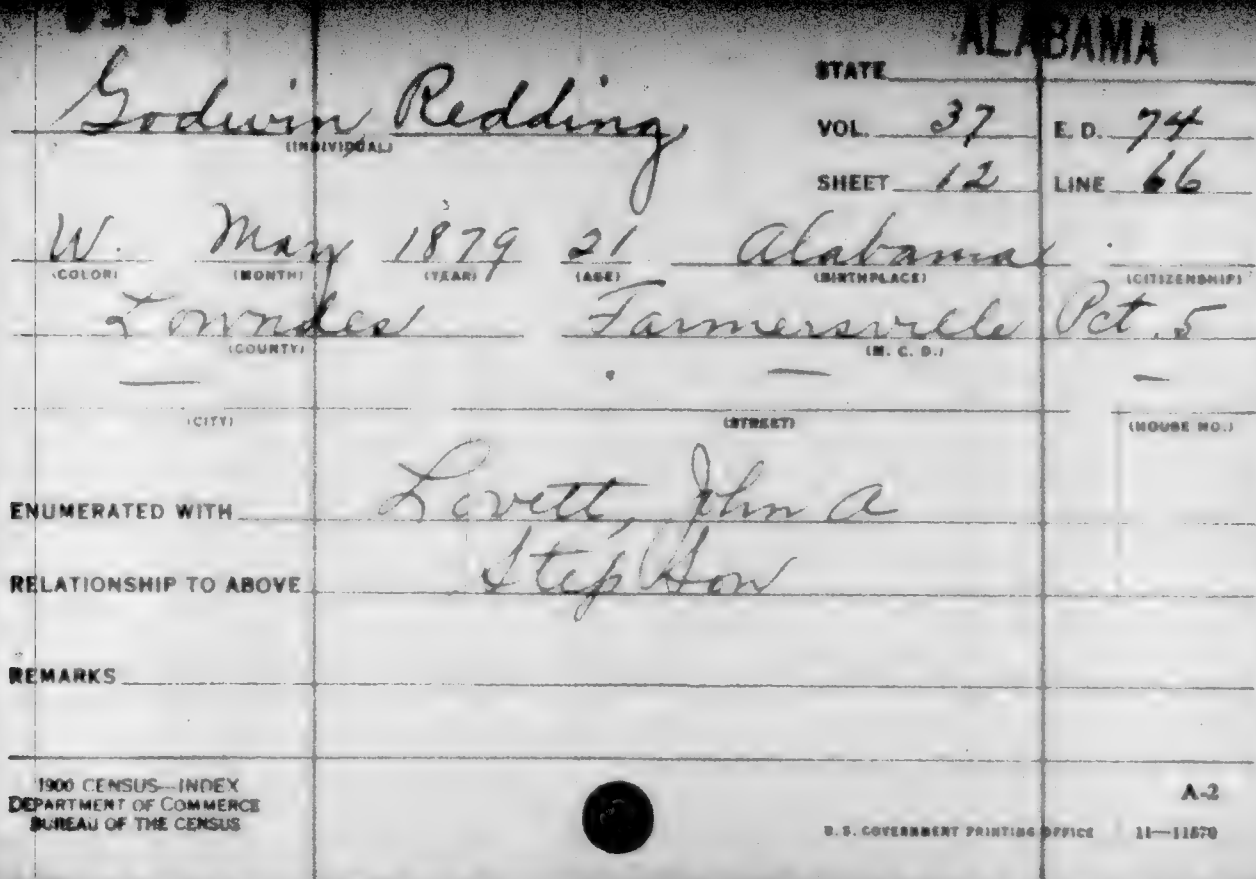 ALABAMA
STATE
Godwin, Redding
(INDIVIDUAL)
VOL. 37 E. D. 74
SHEET 12 LINE 66
W. May 1879 21 Alabama
(COLOR) (MONTH) (YEAR) (AGE) (BIRTHPLACE) (CITIZENSHIP)
Lowndes Farmersville Pct. 5
(COUNTY) (M. C. D.)
— — —
(CITY) (STREET) (HOUSE NO.)
ENUMERATED WITH Lovett, John A
RELATIONSHIP TO ABOVE Step Son
REMARKS
1900 CENSUS—INDEX
DEPARTMENT OF COMMERCE
BUREAU OF THE CENSUS
A-2
U. S. GOVERNMENT PRINTING OFFICE 11—11570